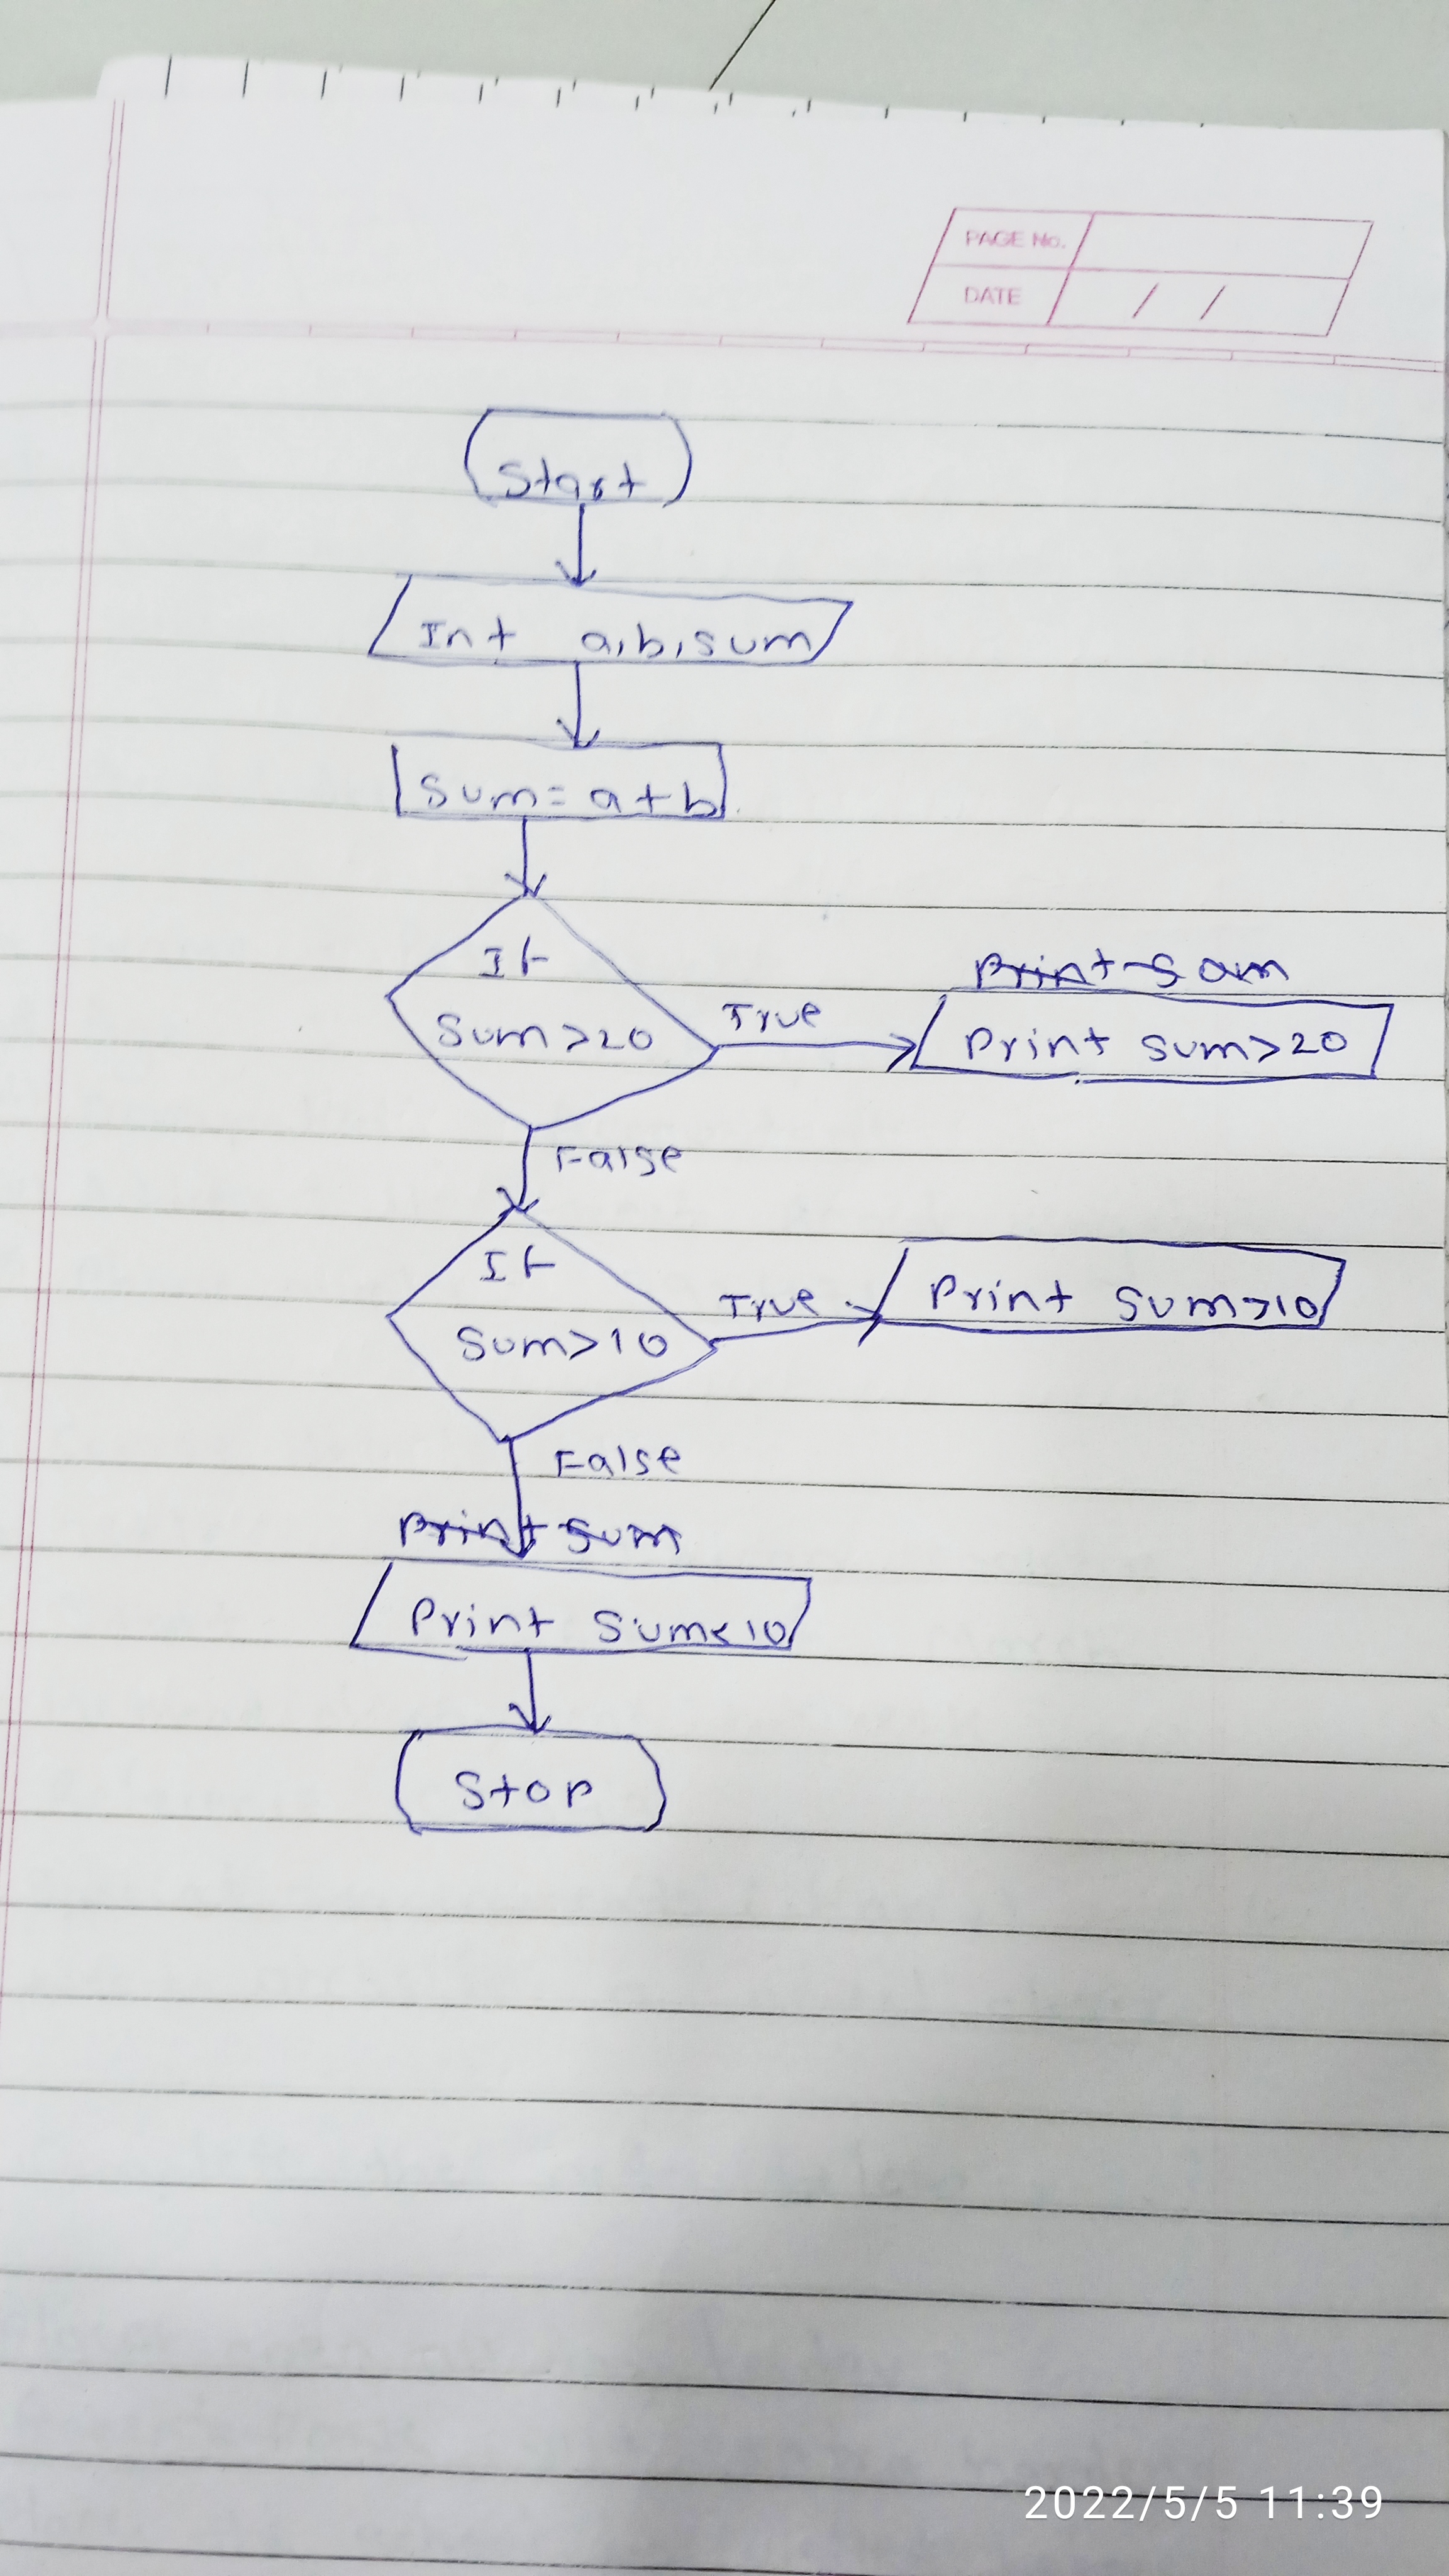 PAGE No.
DATE / /
Start
Int a,b,sum
Sum = a+b
If
Sum>20
True
Print Sum
Print sum>20
False
If
Sum>10
True
Print Sum>10
False
Print Sum
Print Sum<10
Stop
2022/5/5 11:39